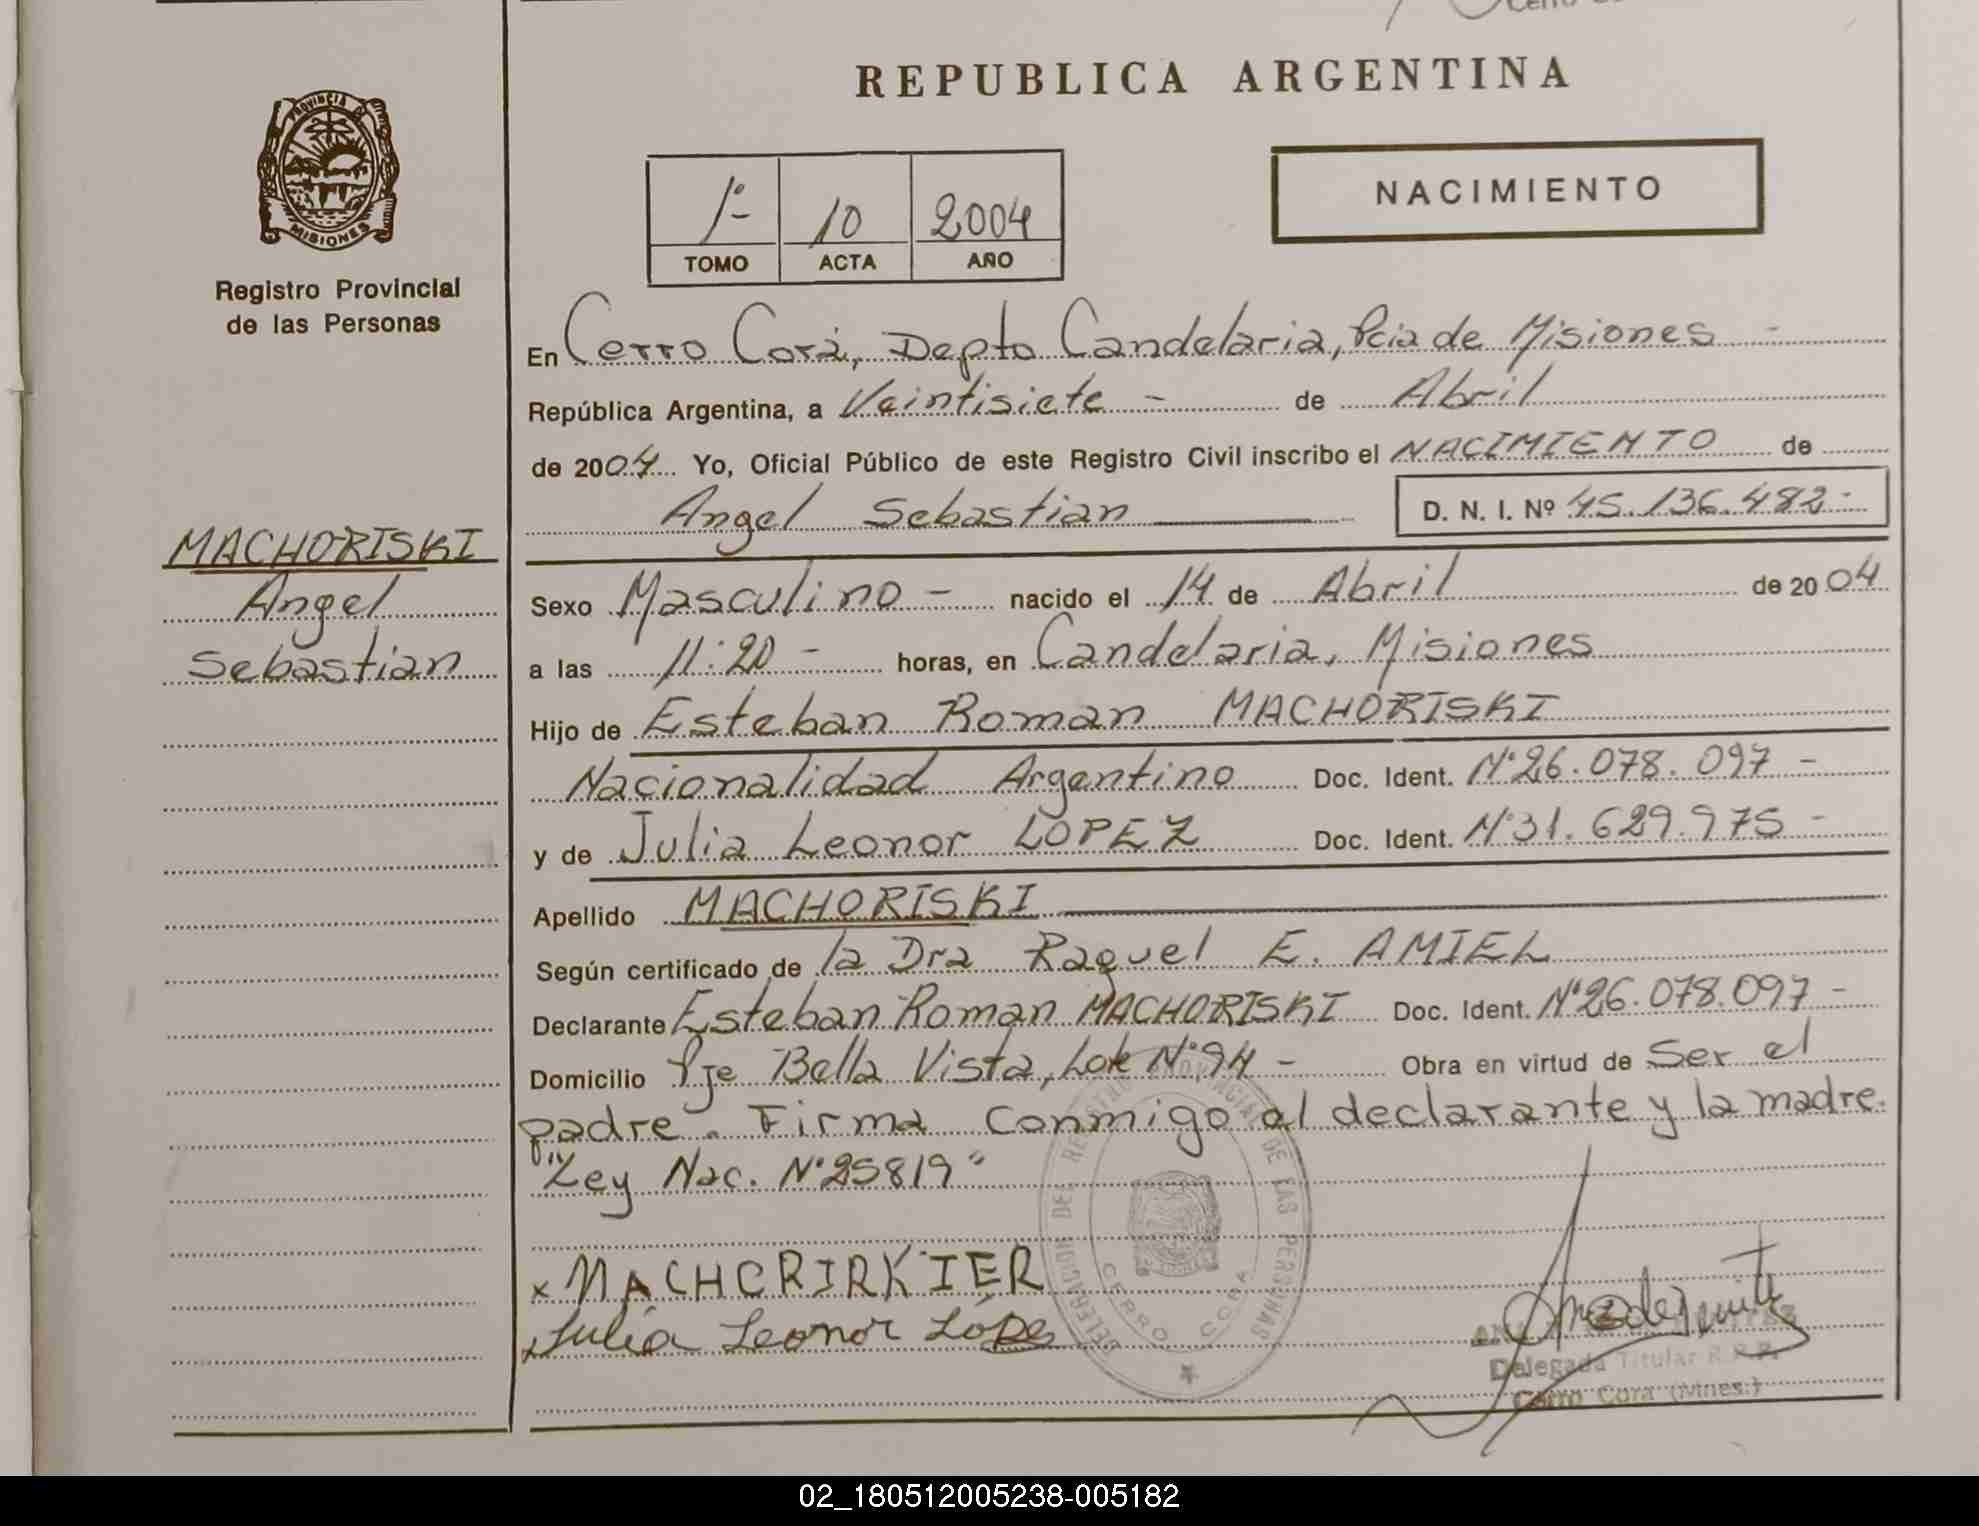 REPUBLICA ARGENTINA
PROVINCIA DE
MISIONES
Registro Provincial
de las Personas
1º-
TOMO
10
ACTA
2004
AÑO
NACIMIENTO
En Cerro Corá, Depto Candelaria, Pcia de Misiones -
República Argentina, a Veintisiete - de Abril
de 2004 Yo, Oficial Público de este Registro Civil inscribo el NACIMIENTO de
Angel Sebastian
D. N. I. Nº 45.136.482-
MACHORISKI
Angel
Sebastian
Sexo Masculino - nacido el 14 de Abril de 2004
a las 11:20 - horas, en Candelaria, Misiones
Hijo de Esteban Roman MACHORISKI
Nacionalidad Argentino Doc. Ident. Nº26.078.097 -
y de Julia Leonor LOPEZ Doc. Ident. Nº31.629.975 -
Apellido MACHORISKI
Según certificado de la Dra Raquel E. AMIEL
Declarante Esteban Roman MACHORISKI Doc. Ident. Nº26.078.097 -
Domicilio Pje Bella Vista, Lote Nº94 - Obra en virtud de Ser el
padre. Firma conmigo el declarante y la madre.
"Ley Nac. Nº25819"
x MACHCRIRKIER
Julia Leonor López
DELEGACION DEL REGISTRO PROVINCIAL DE LAS PERSONAS
CERRO CORA
Delegada Titular R.P.P.
Cerro Cora (Mnes.)
02_180512005238-005182